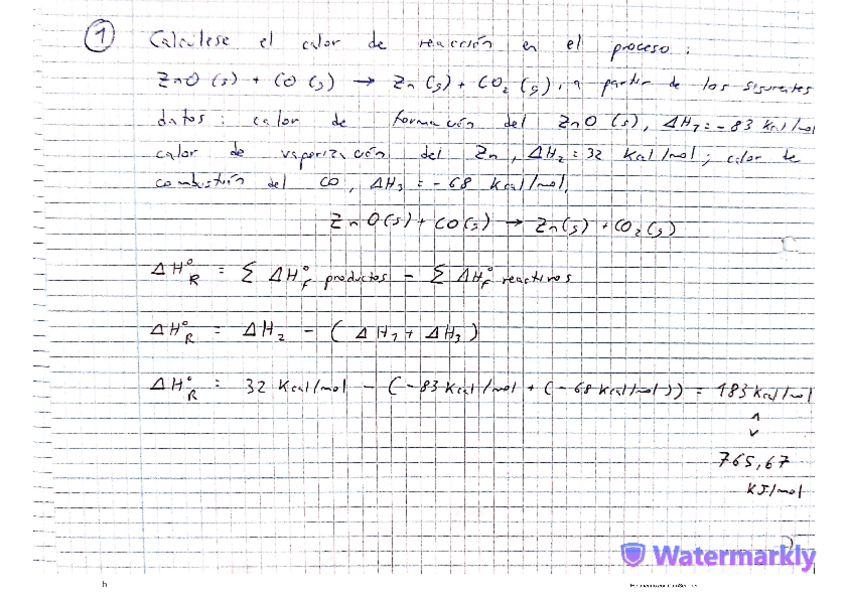 1 Calculese el calor de reacción en el proceso:
ZnO (s) + CO (g) → Zn (g) + CO₂ (g), a partir de los siguientes
datos: calor de formación del ZnO (s), ΔH₁ = -83 Kcal/mol
calor de vaporización del Zn, ΔH₂ = 32 Kcal/mol; calor de
combustión del CO, ΔH₃ = -68 Kcal/mol.
ZnO(s) + CO(g) → Zn(g) + CO₂(g)
ΔH°R = Σ ΔH°f productos - Σ ΔH°f reactivos
ΔH°R = ΔH₂ - (ΔH₁ + ΔH₃)
ΔH°R = 32 Kcal/mol - (-83 Kcal/mol + (-68 Kcal/mol)) = 183 Kcal/mol
765,67
KJ/mol
Watermarkly